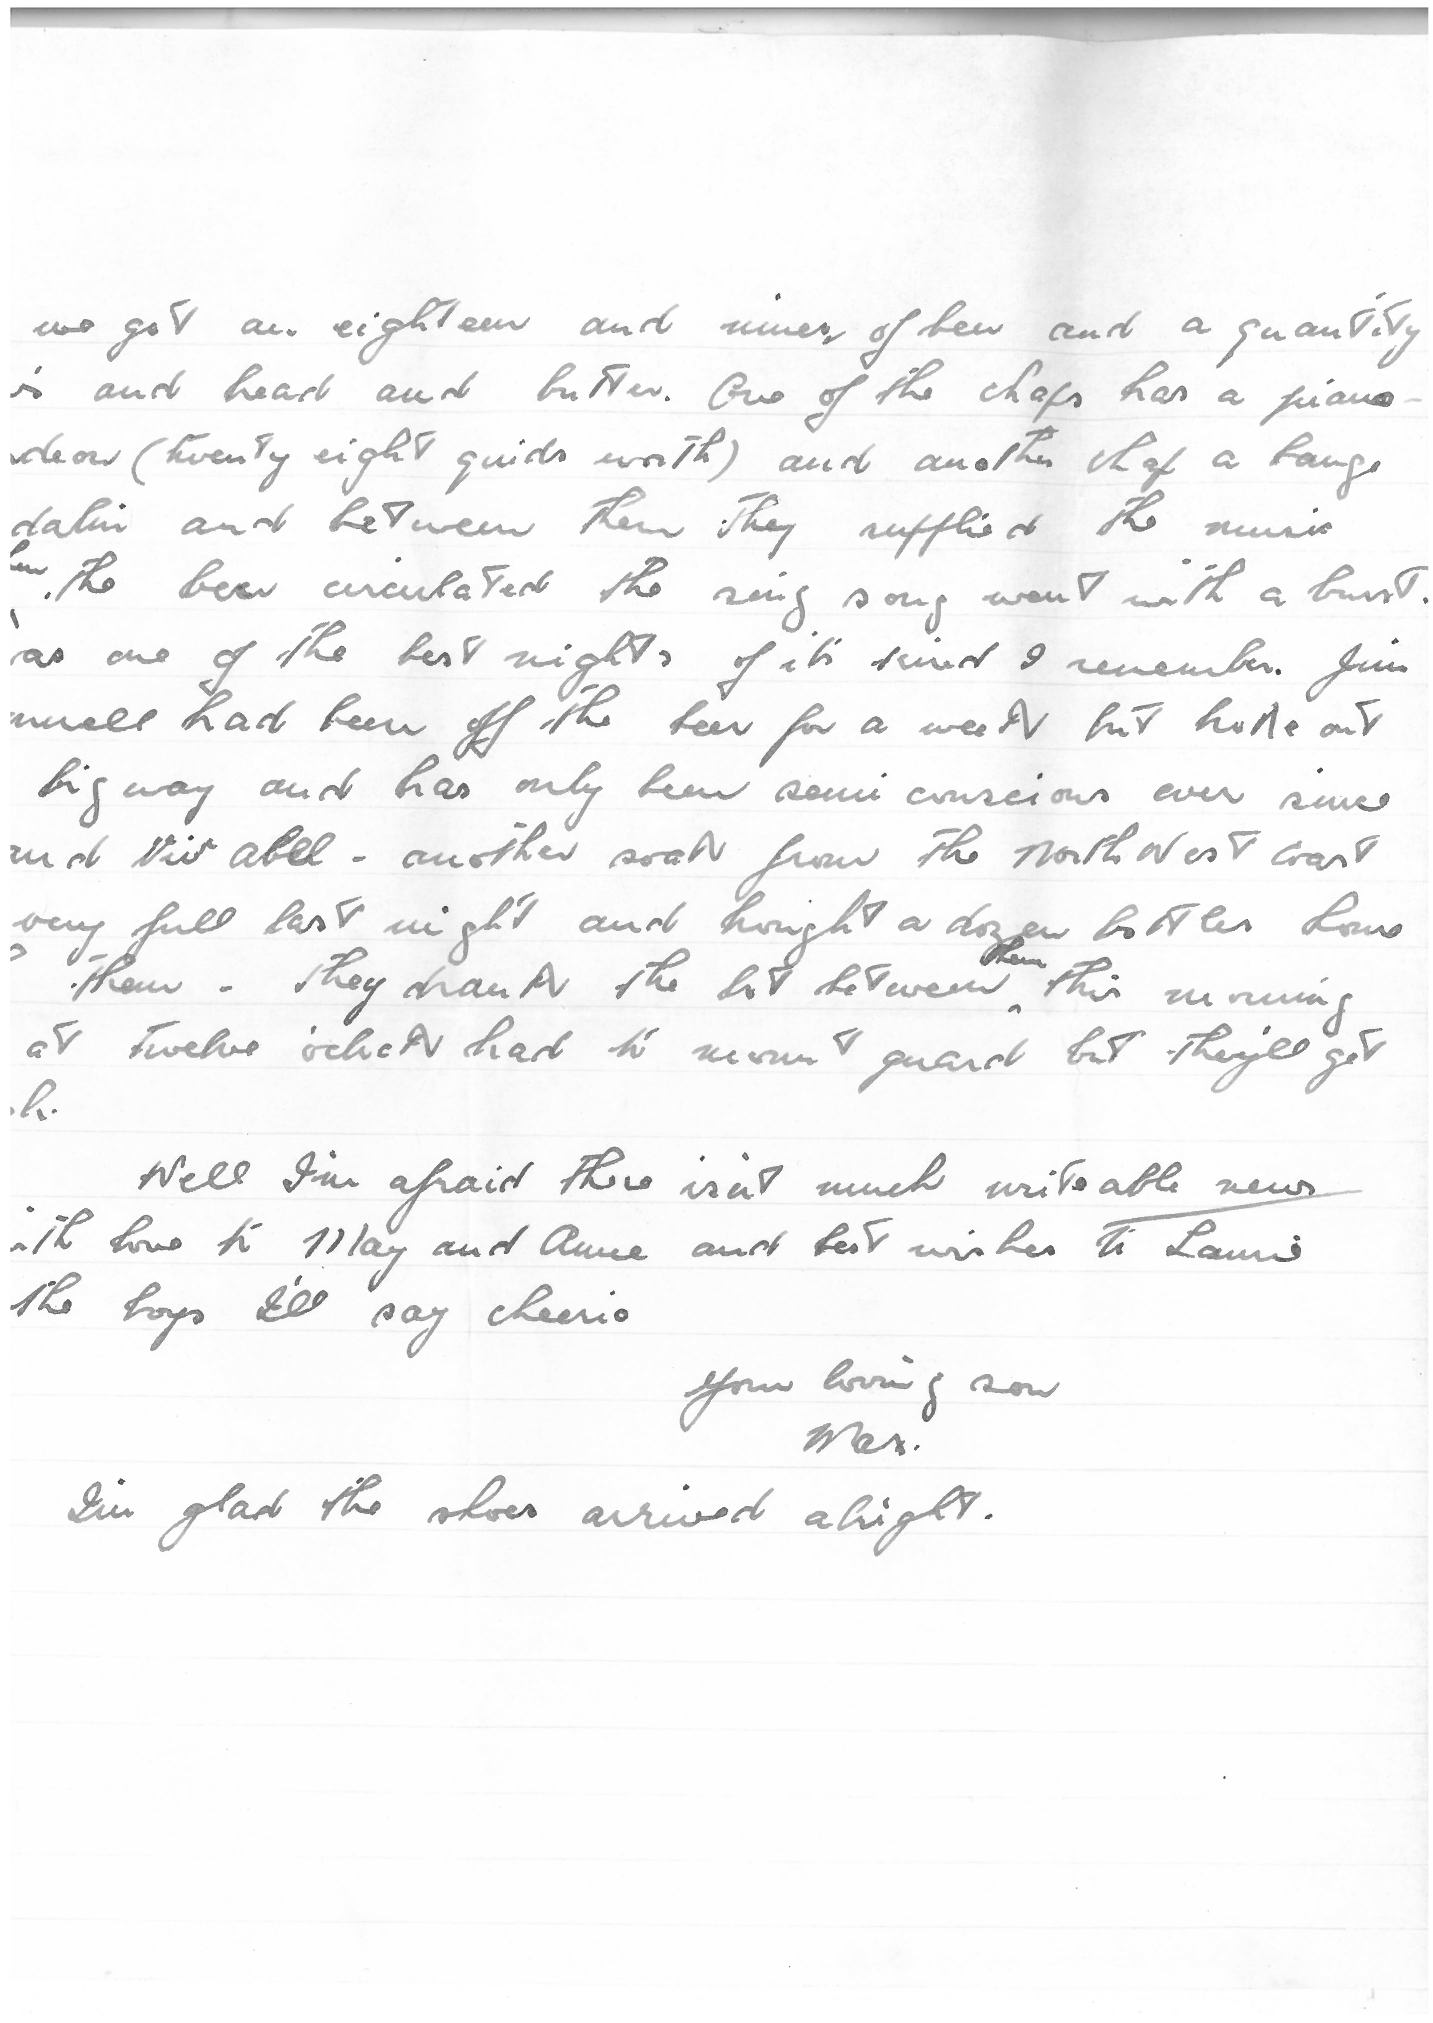 we got an eighteen and niner of beer and a quantity
and bread and butter. One of the chaps has a piano-
deon (twenty eight quids worth) and another chap a banjo
dalin and between them they supplied the music
the beer circulated the sing song went with a burst.
as one of the best nights of its kind I remember. Jim
nnell had been off the beer for a week but broke out
big way and has only been semi conscious ever since
nd Viv Abell - another soak from the North West Coast
very full last night and brought a dozen bottles home
them - They drank the lot between them this morning
at twelve o'clock had to mount guard but they'll get
h.
Well I'm afraid there isn't much writeable news
ith love to May and Anne and best wishes to Laurie
the boys I'll say cheerio
Your loving son
Max.
I'm glad the shoes arrived alright.